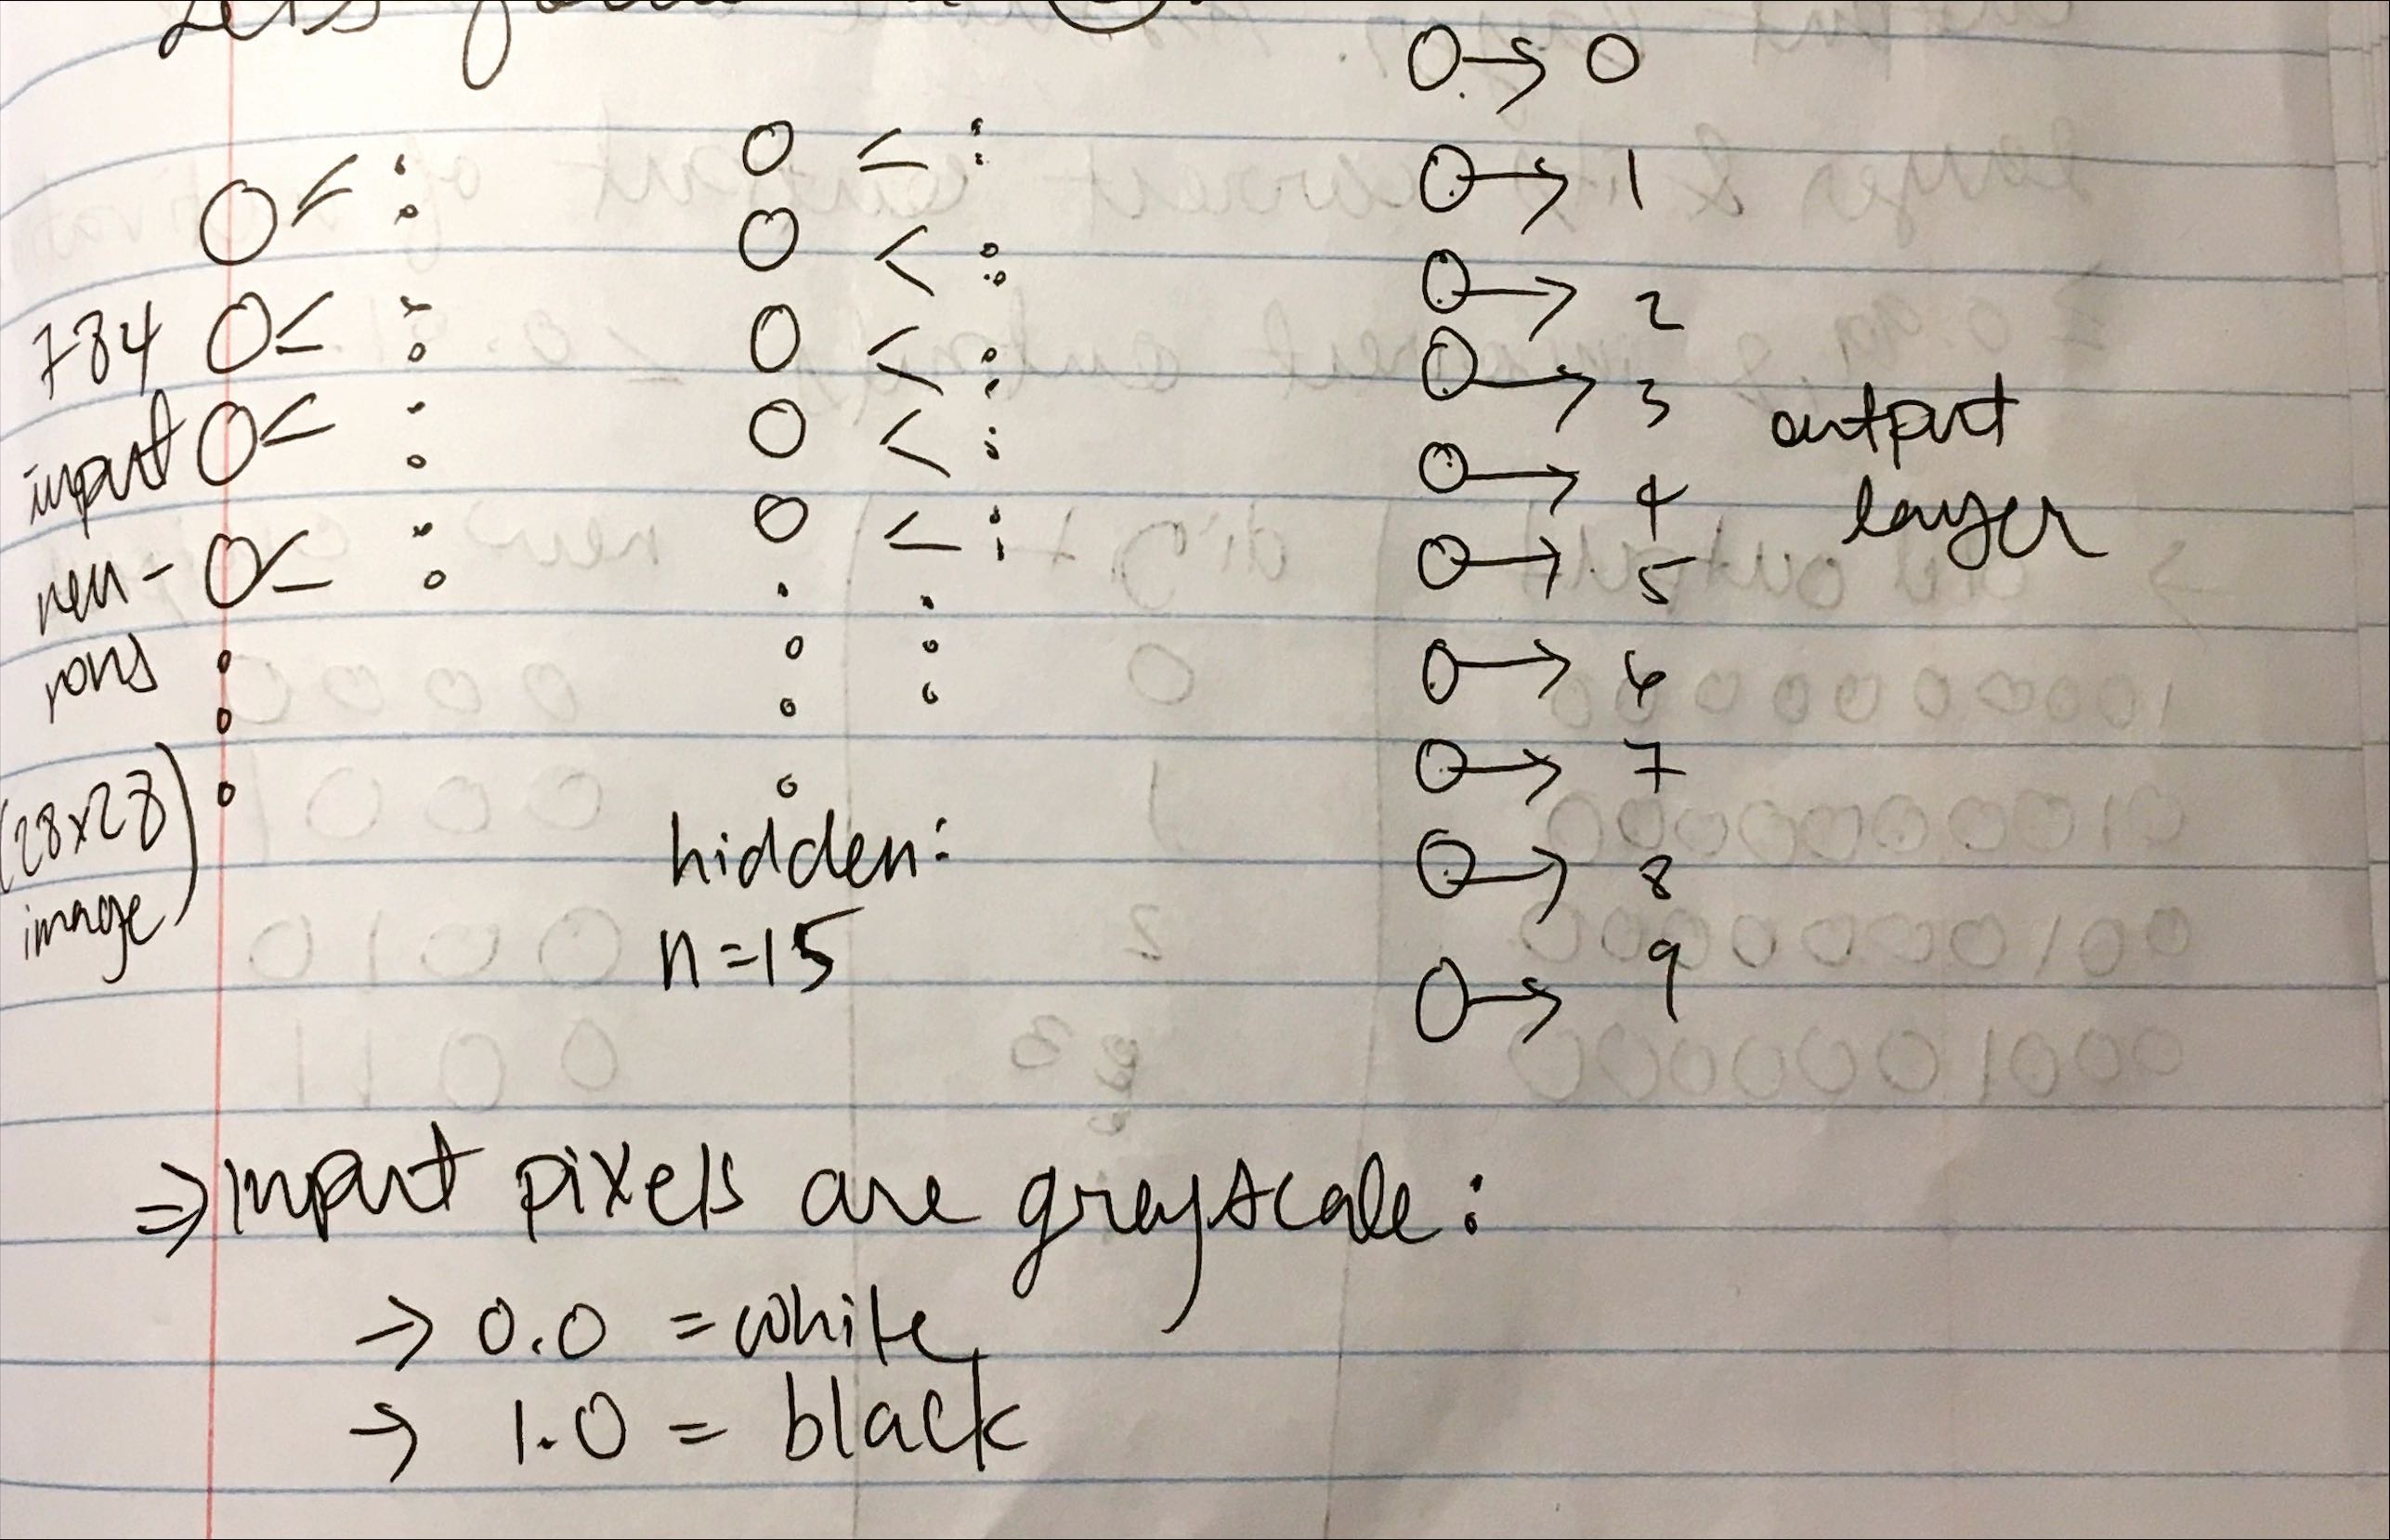 Lets
0
1
2
3
4
5
6
7
8
9
784
input
neu-
rons
(28x28
image)
hidden:
n=15
output
layer
⇒ input pixels are greyscale:
→ 0.0 = white
→ 1.0 = black